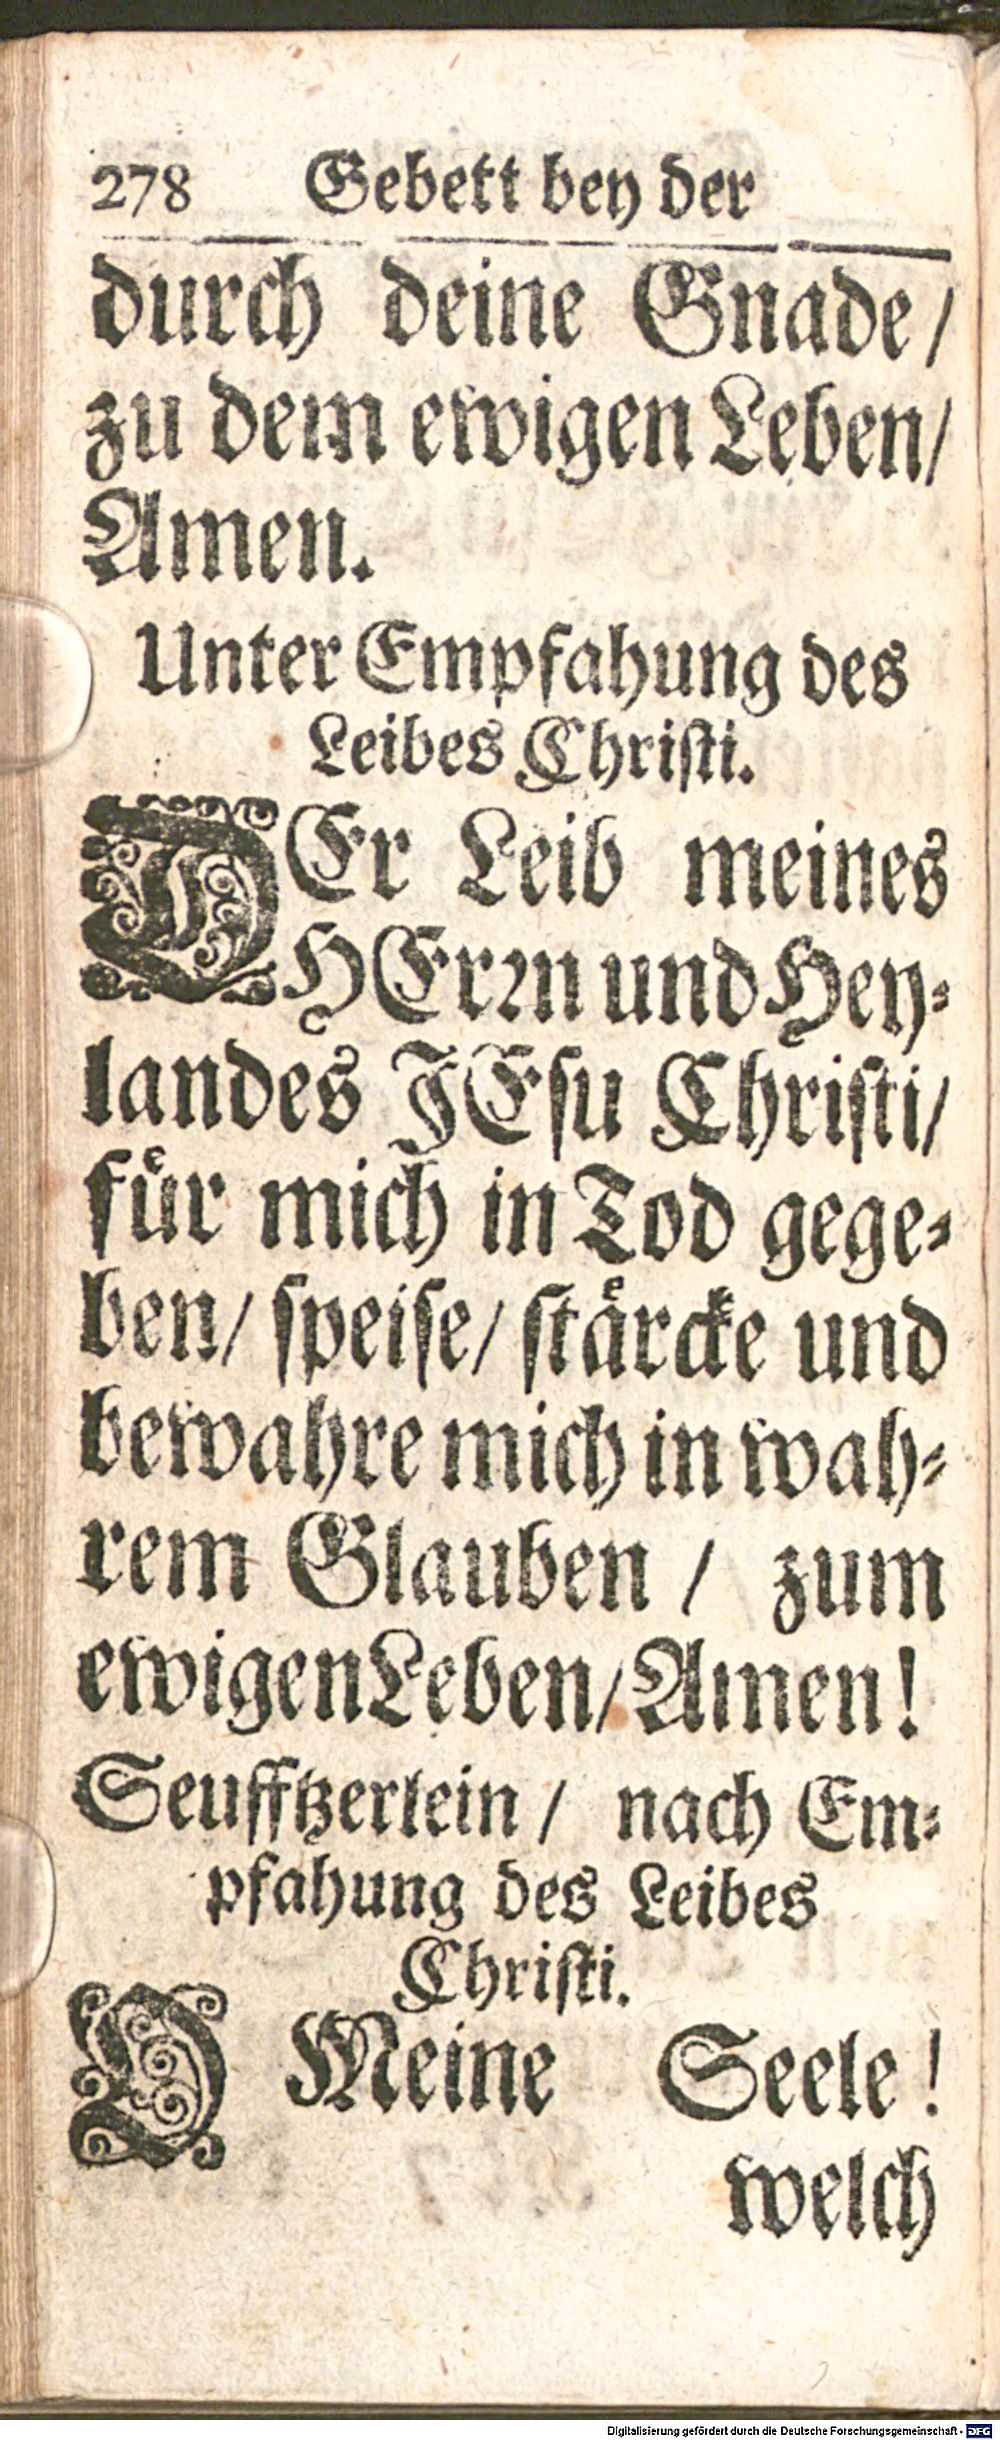 278 Gebett bey der
durch deine Gnade/
zu dem ewigen Leben/
Amen.
Unter Empfahung des
Leibes Christi.
DEr Leib meines
HErrn und Hey-
landes JEsu Christi/
fuͤr mich in Tod gege-
ben/ speise/ staͤrcke und
bewahre mich in wah-
rem Glauben / zum
ewigen Leben/ Amen!
Seufftzerlein / nach Em-
pfahung des Leibes
Christi.
O Meine Seele!
welch
Digitalisierung gefördert durch die Deutsche Forschungsgemeinschaft - DFG